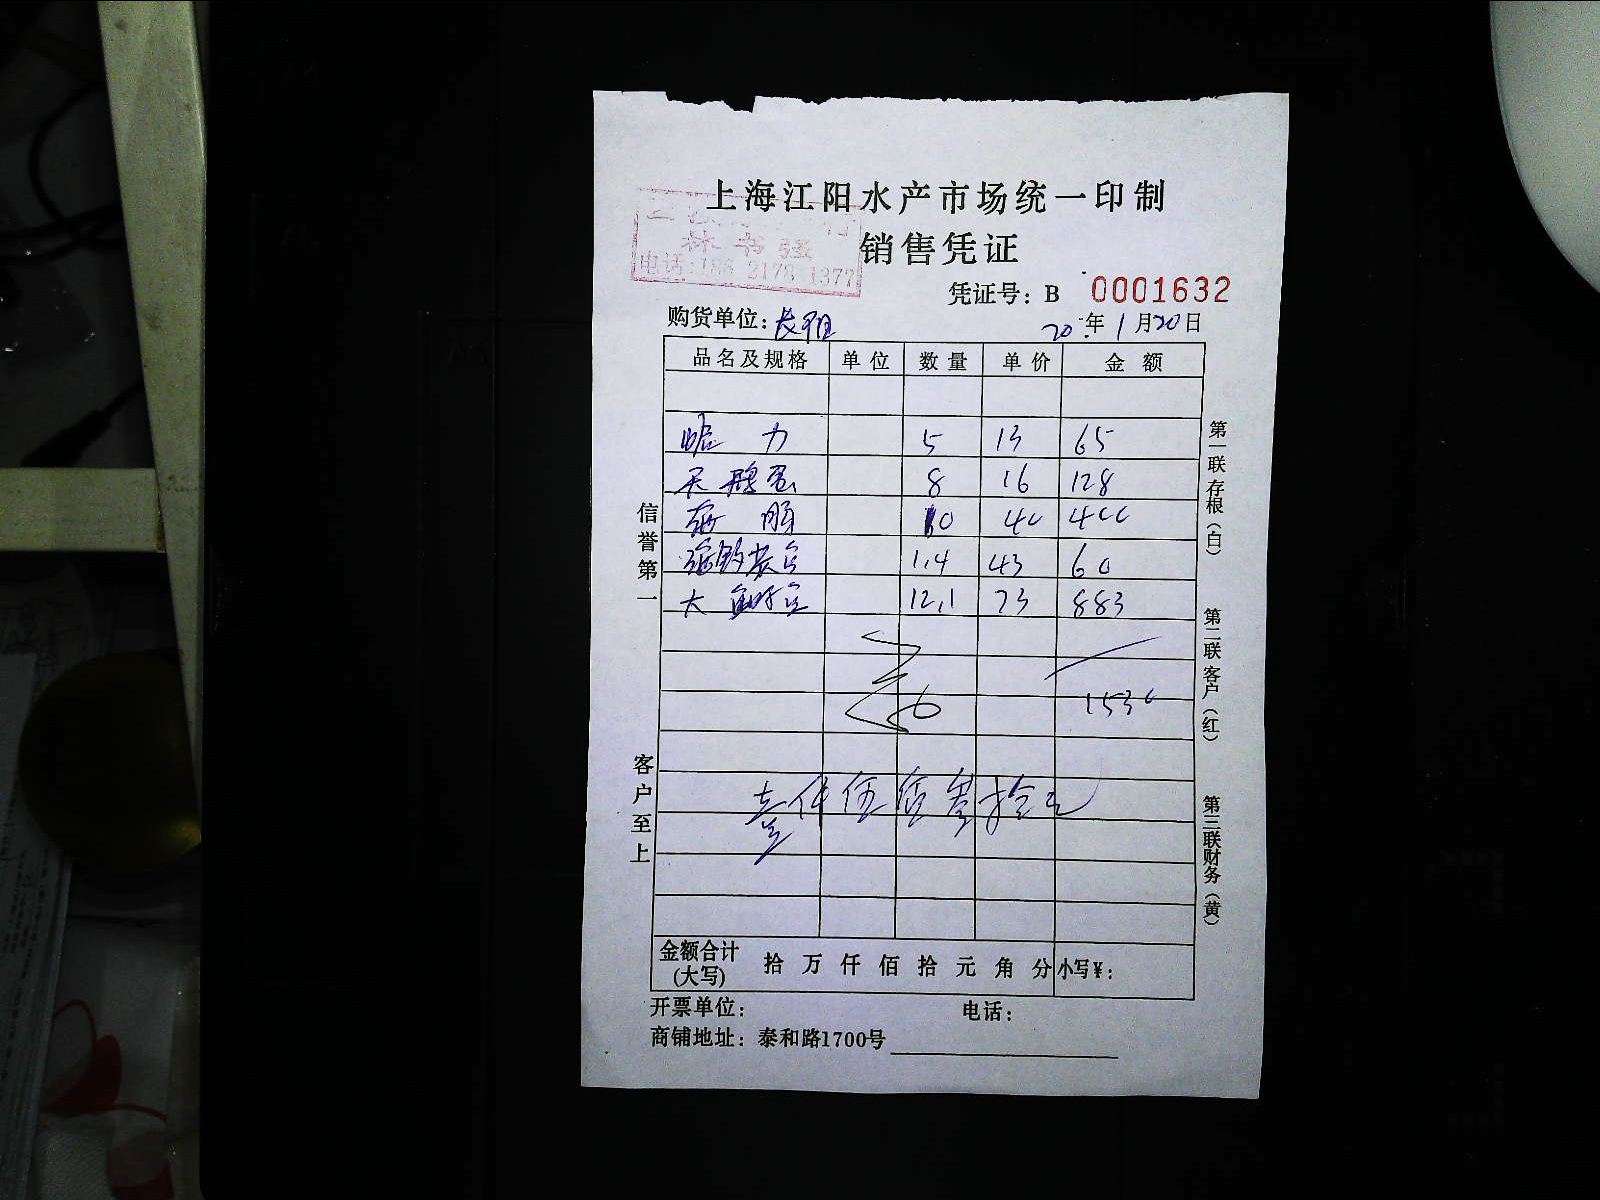 上海江阳水产市场统一印制
销售凭证
林书强
电话:188 2178 1377
凭证号：B 0001632
购货单位：长阳
20年1月20日
品名及规格 单位 数量 单价 金额
力 5 13 65
天鹅蛋 8 16 128
10 40 400
1.4 43 60
大 12.1 73 883
1530
壹仟伍佰叁拾元
金额合计(大写) 拾 万 仟 佰 拾 元 角 分 小写￥：
开票单位： 电话：
商铺地址：泰和路1700号
信誉第一
客户至上
第一联存根（白）
第二联客户（红）
第三联财务（黄）